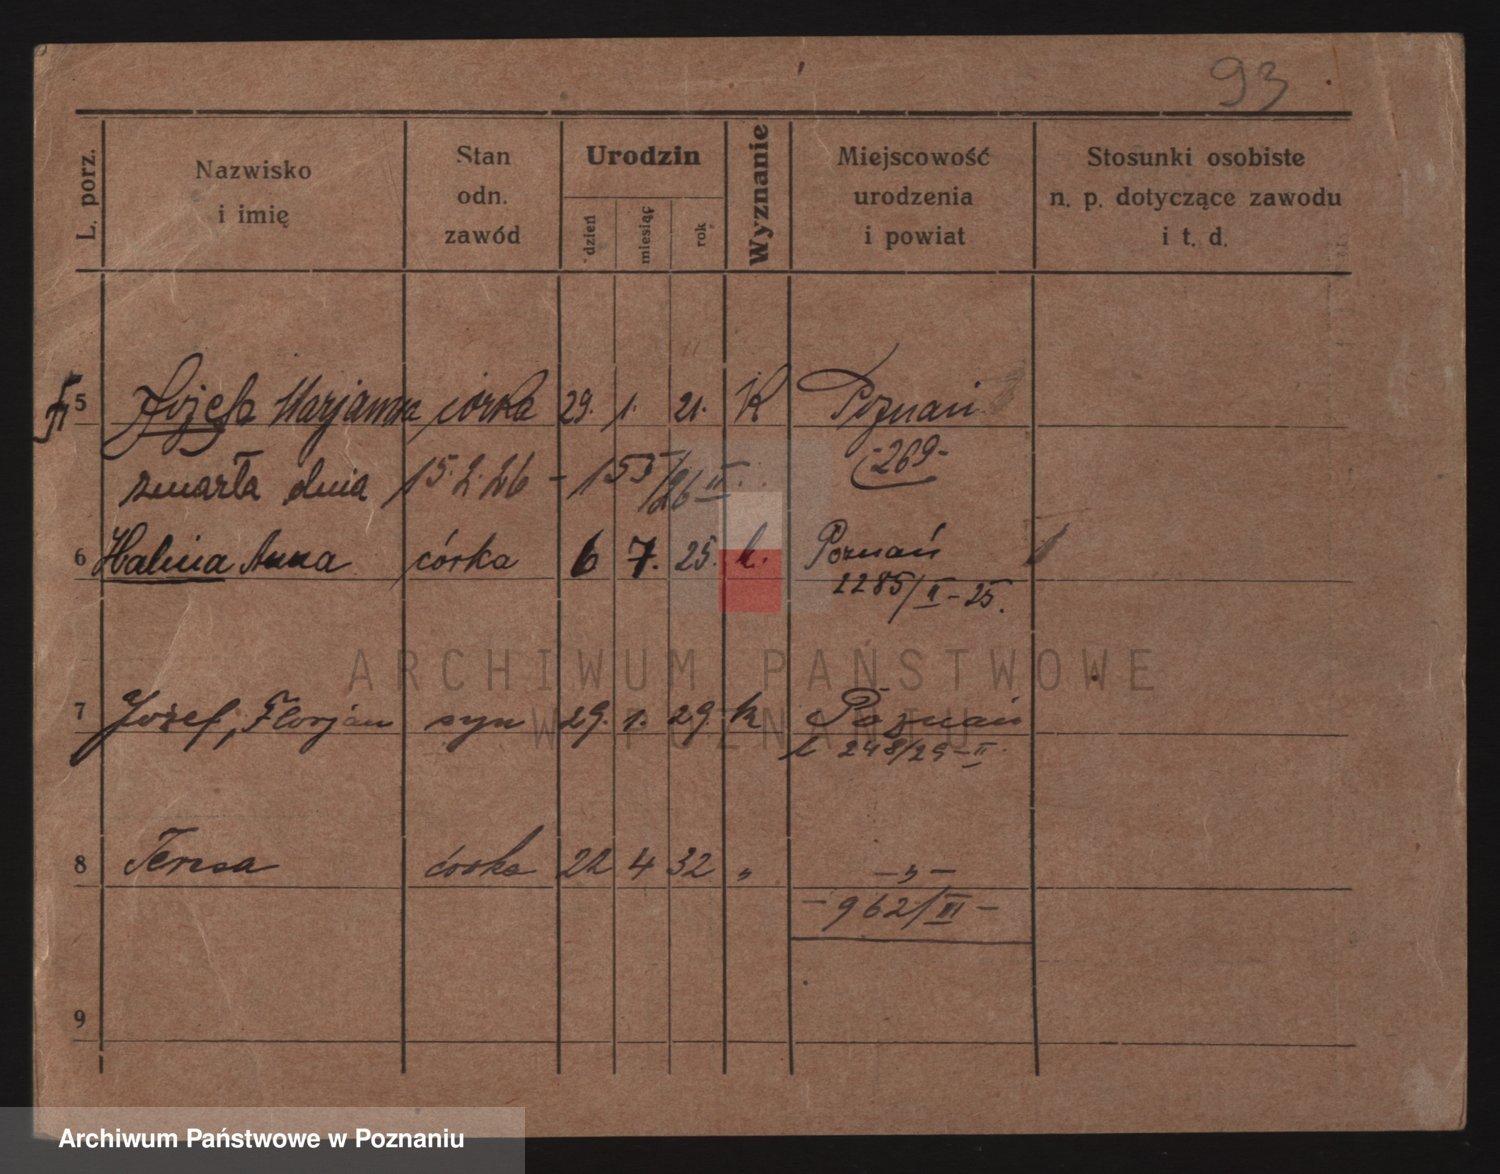 93
L. porz.
Nazwisko
i imię
Stan
odn.
zawód
Urodzin
dzień
miesiąc
rok
Wyznanie
Miejscowość
urodzenia
i powiat
Stosunki osobiste
n. p. dotyczące zawodu
i t. d.
5 Józefa Marjanna córka 29. 1. 21. K Poznań
-269-
zmarła dnia 15.2.26 - 155/26 II.
6 Halina Anna córka 6 7. 25. k. Poznań
2285/II-25.
7 Józef, Florjan syn 29. 1. 29. K Poznań
248/29-II
8 Teresa córka 22 4 32 „ — „ —
- 962/III -
9
ARCHIWUM PAŃSTWOWE
W POZNANIU
Archiwum Państwowe w Poznaniu